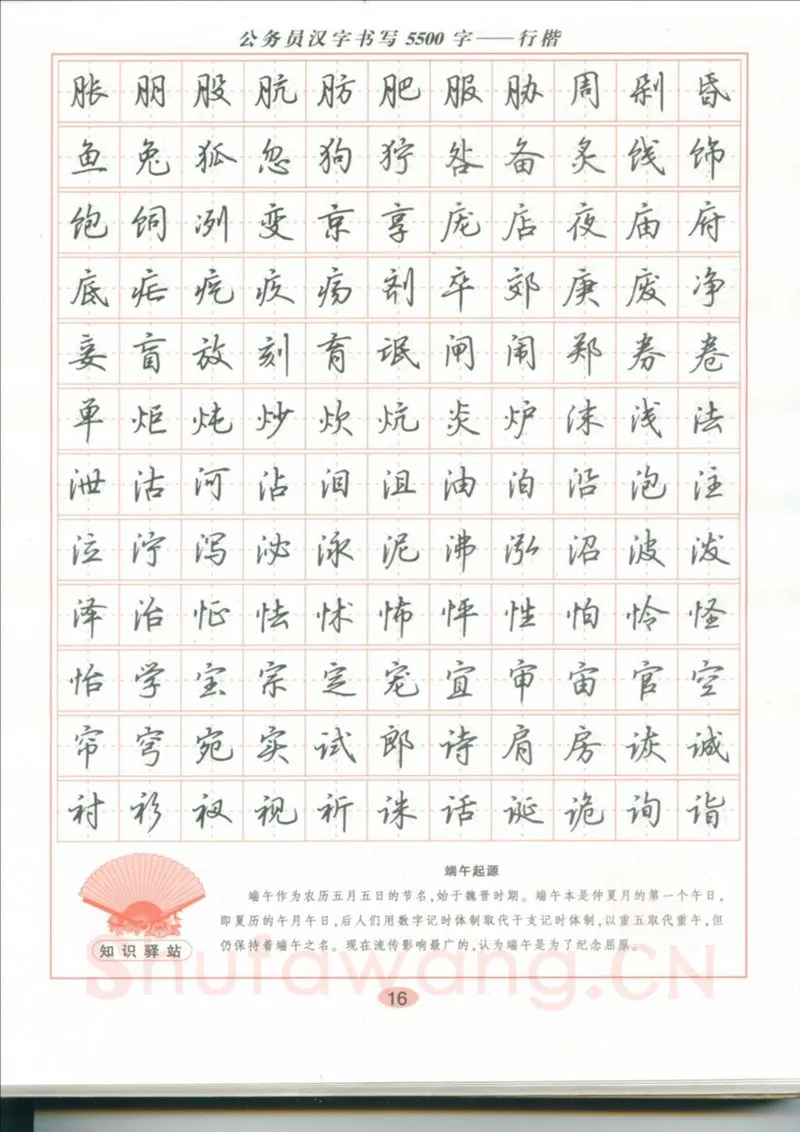 公务员汉字书写5500字——行楷
胀朋股肮肪肥服胁周剁昏
鱼兔狐忽狗狞咎备炙饯饰
饱饲冽变京享庞店夜庙府
底疟疙疚疡剂卒郊庚废净
妾盲放刻育氓闸闹郑券卷
单炬炖炒炊炕炎炉沫浅法
泄沽河沾泪沮油泊沿泡注
泣泞泻泌泳泥沸泓沼波泼
泽治怔怯怵怖怦性怕怜怪
怡学宝宗定宠宜审宙官空
帘穹宛实试郎诗肩房诙诚
衬衫衩视祈诛话诞诡询诣
端午起源
端午作为农历五月五日的节名,始于魏晋时期。端午本是仲夏月的第一个午日,
即夏历的午月午日,后人们用数字记时体制取代干支记时体制,以重五取代重午,但
仍保持着端午之名。现在流传影响最广的,认为端午是为了纪念屈原。
知识驿站
Shufawang.CN
16